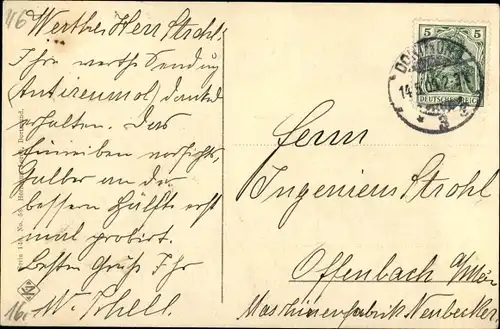 46
Werther Herr Strohl.
Ihre werthe Sendung
(Antireumol) dankend
erhalten. Das
Einreiben vorsichts-
halber an der
bessern Hälfte erst
mal probirt.
Besten Gruß Ihr
W. Schell.
16.
5 5
DEUTSCHES REICH
DORTMUND
14.
* 3 a
Herrn
Ingenieur Strohl
Offenbach a/Main
Maschinenfabrik Neubecker.
Dortmund.